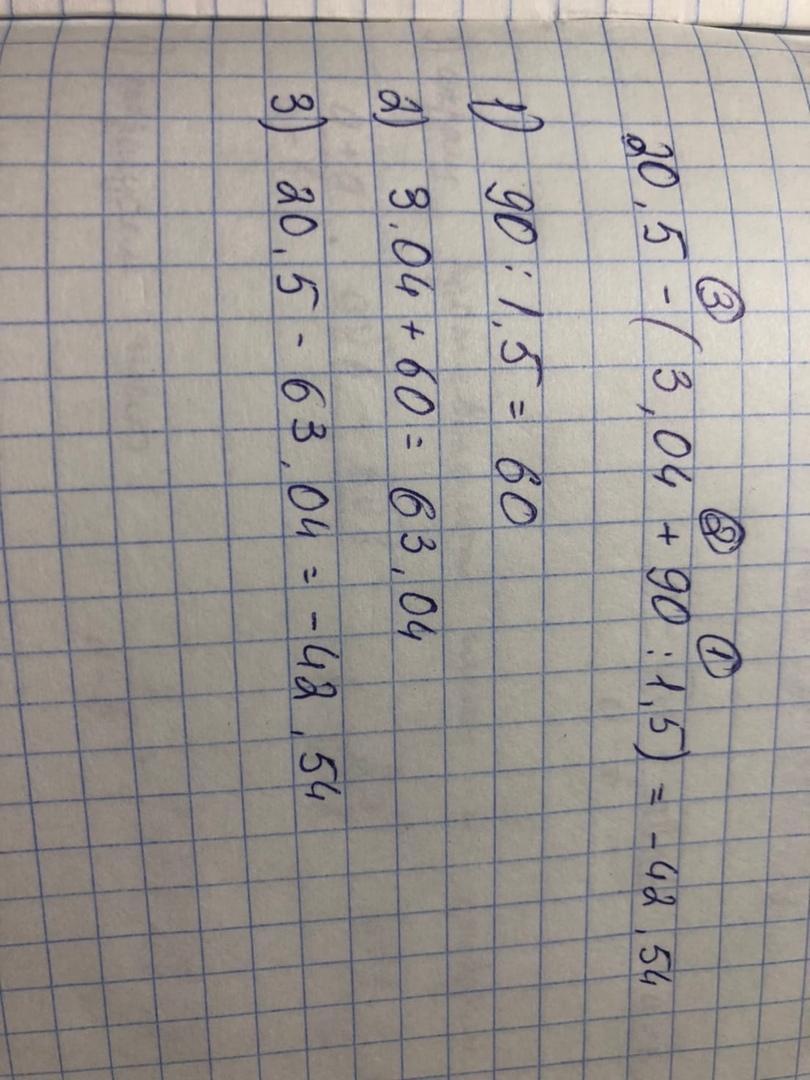 ③ ② ①
20,5 - (3,04 + 90 : 1,5) = -42,54
1) 90 : 1,5 = 60
2) 3,04 + 60 = 63,04
3) 20,5 - 63,04 = -42,54